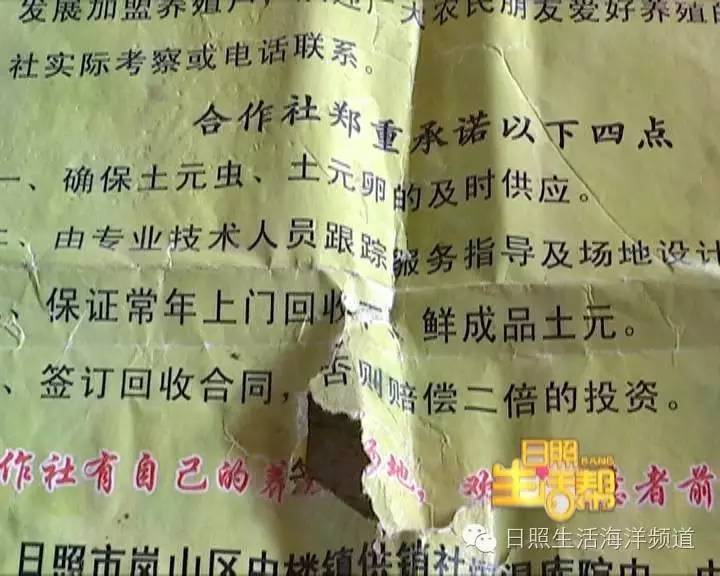 发展加盟养殖户,
大农民朋友爱好养殖的
社实际考察或电话联系。
合作社郑重承诺以下四点
一、确保土元虫、土元卵的及时供应。
、由专业技术人员跟踪服务指导及场地设计
、保证常年上门回收 、鲜成品土元。
、签订回收合同,否则赔偿二倍的投资。
作社有自己的养 地, 者前
日照
BANG
生活帮
日照生活海洋频道
日照市岚山区中楼镇供销社 温库院内